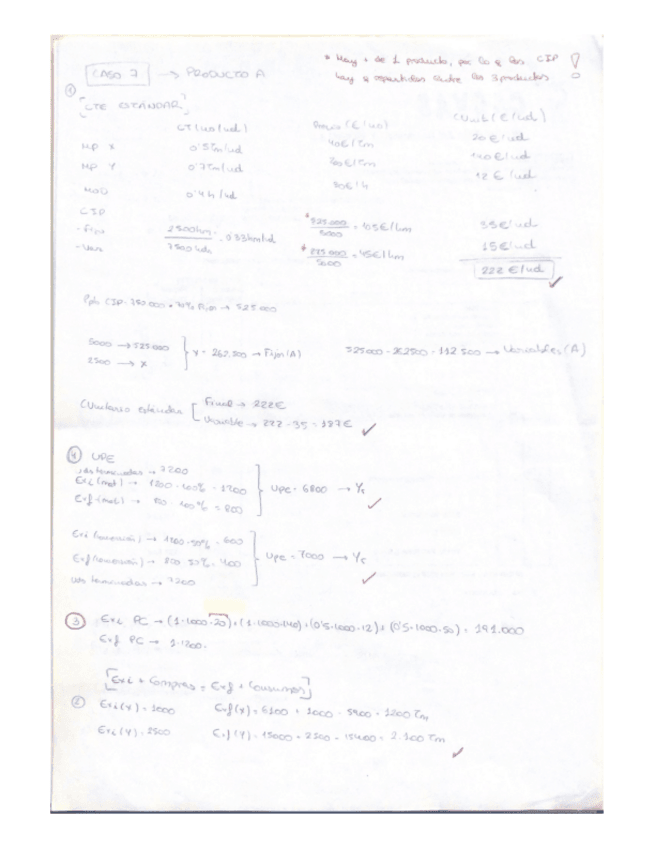 * Hay + de 1 producto, por lo q los CIP !
hay q repartirlos entre los 3 productos
CASO 7 → PRODUCTO A
①
[CTE ESTÁNDAR]
CT (uo/ud) Precio (€/uo) CUnit (€/ud)
MP X 0'5Tm/ud 40€/Tm 20 €/ud
MP Y 0'7Tm/ud 140€/ud
MOD 0'4h/ud 30€/h 12 €/ud
CIP
-Fijos 2500hm 0'33hm/ud * 525.000 / 5000 = 105€/hm 35€/ud
-Var 7500uds * 225.000 / 5000 = 45€/hm 15€/ud
222 €/ud
Ppto CIP: 750.000 Fijos → 525.000
5000 → 525.000
2500 → X
x = 262.500 → Fijos (A) → Variables (A)
CUnitarios estándar [ Final → 222€
Variable → 222 - 35 = 187€
④ UPE
uds terminadas → 7200
Exi (mat) → 1200 · 100% = 1200
Exf (mat) → 800 · 100% = 800
UPE = 6800 → Y/s
Exi (conversión) → 1200 · 50% = 600
Exf (conversión) → 800 · 50% = 400
UPE = 7000 → Y/s
uds terminadas → 7200
③ Exi PC → (1·1000·20)+(1·1000·140)+(0'5·1000·12)+(0'5·1000·50) = 191.000
Exf PC → 1·1200.
[Exi + Compras = Exf + Consumos]
② Exi (X) = 1000 Exf (X) = 6100 + 1000 - 5900 = 1200 Tm
Exi (Y) = 2500 Exf (Y) = 15000 + 2500 - 15400 = 2.100 Tm